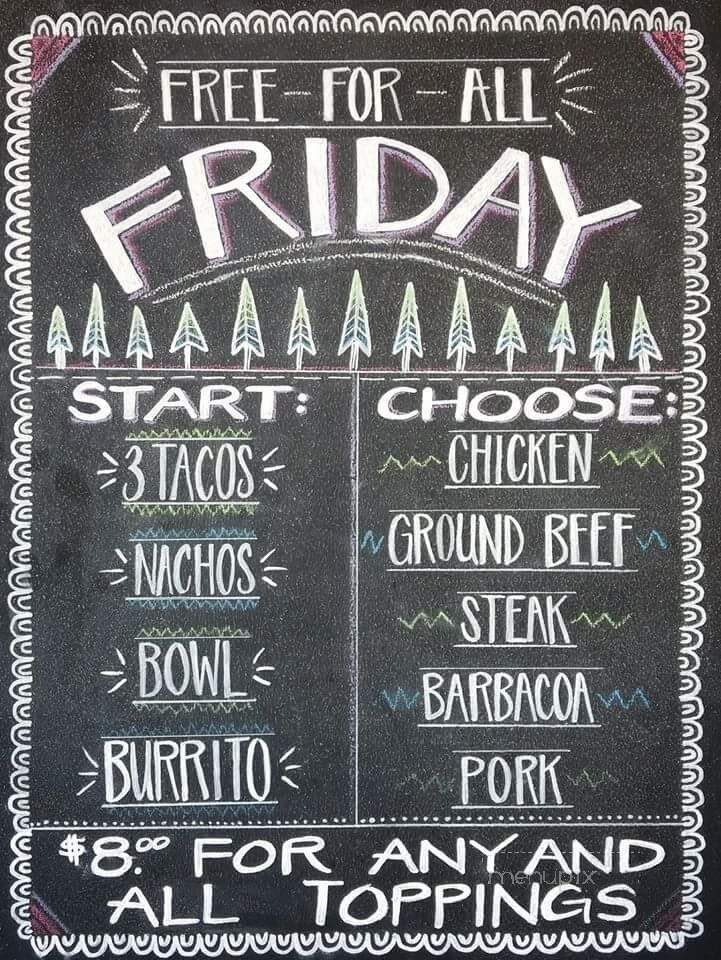 FREE-FOR-ALL
FRIDAY
START:
3 TACOS
NACHOS
BOWL
BURRITO
CHOOSE:
CHICKEN
GROUND BEEF
STEAK
BARBACOA
PORK
$8.00 FOR ANY AND
ALL TOPPINGS
menupix